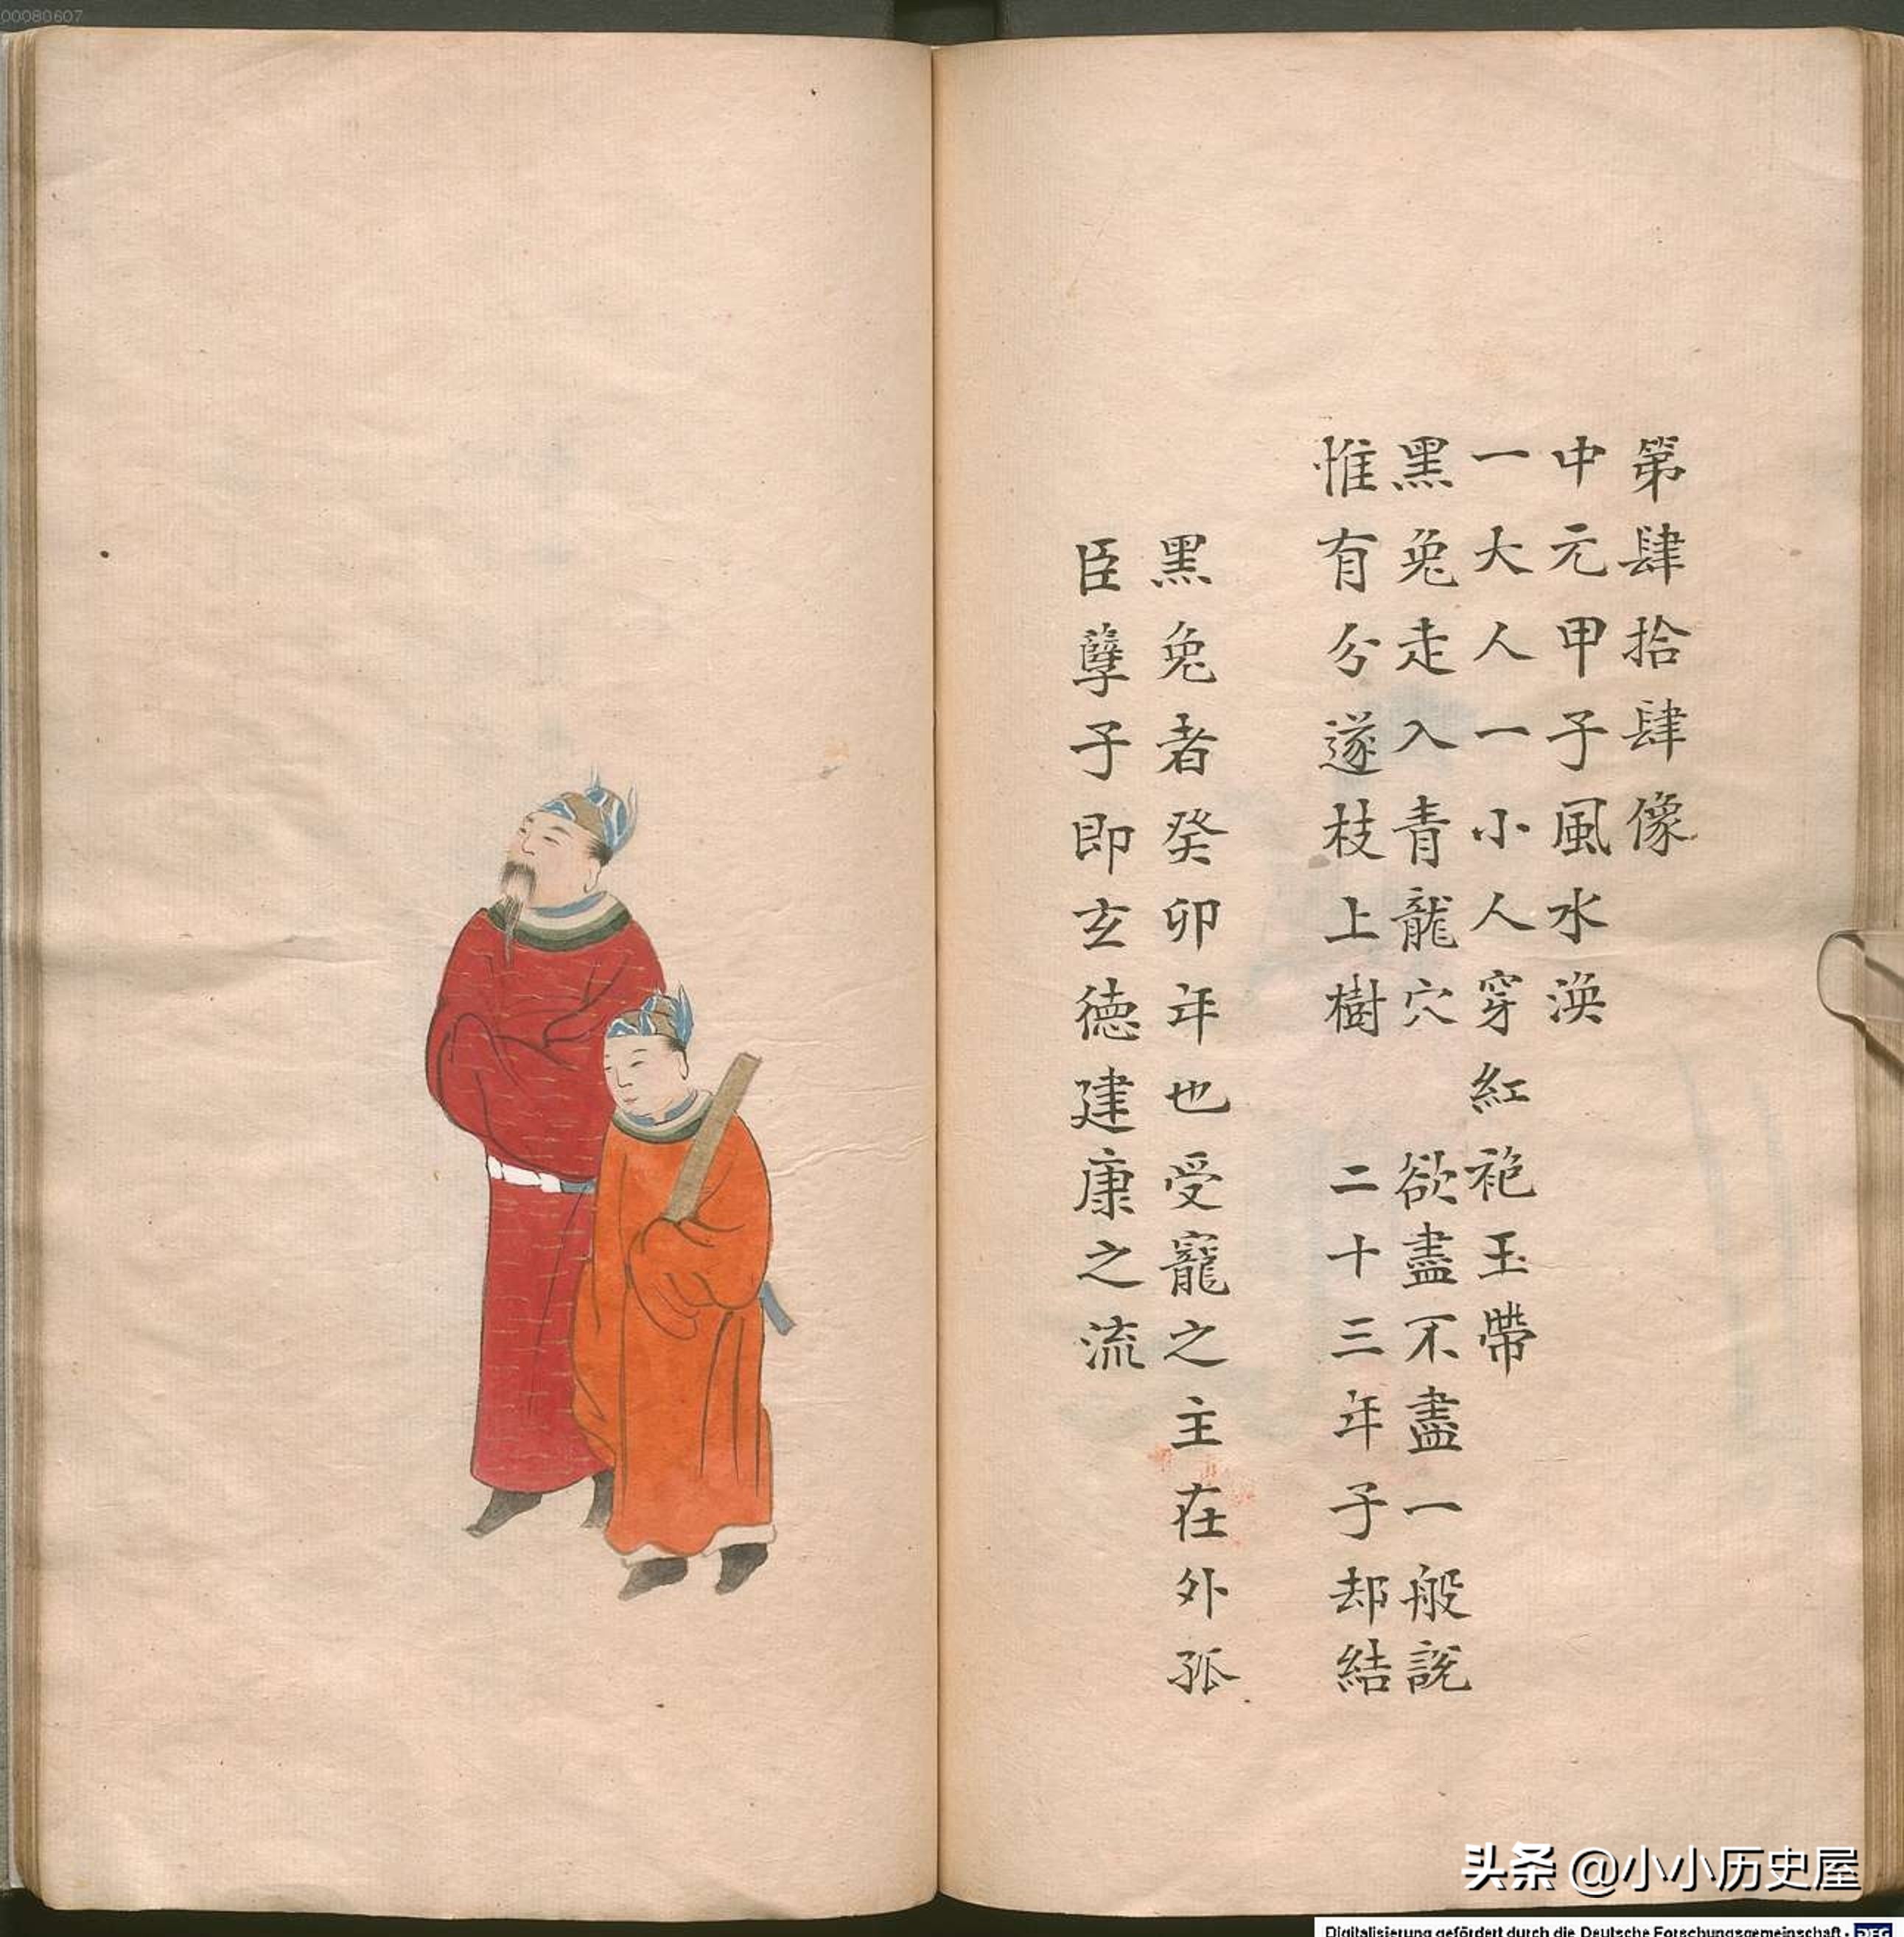 00080607
第肆拾肆像
中元甲子風水渙
一大人一小人穿紅袍玉帶
黑兔走入青龍穴 欲盡不盡一般說
惟有分遂枝上樹 二十三年子却結
黑兔者癸卯年也受寵之主在外孤
臣孽子即玄德建康之流
头条 @小小历史屋
Digitalisierung gefördert durch die Deutsche Forschungsgemeinschaft - DFG